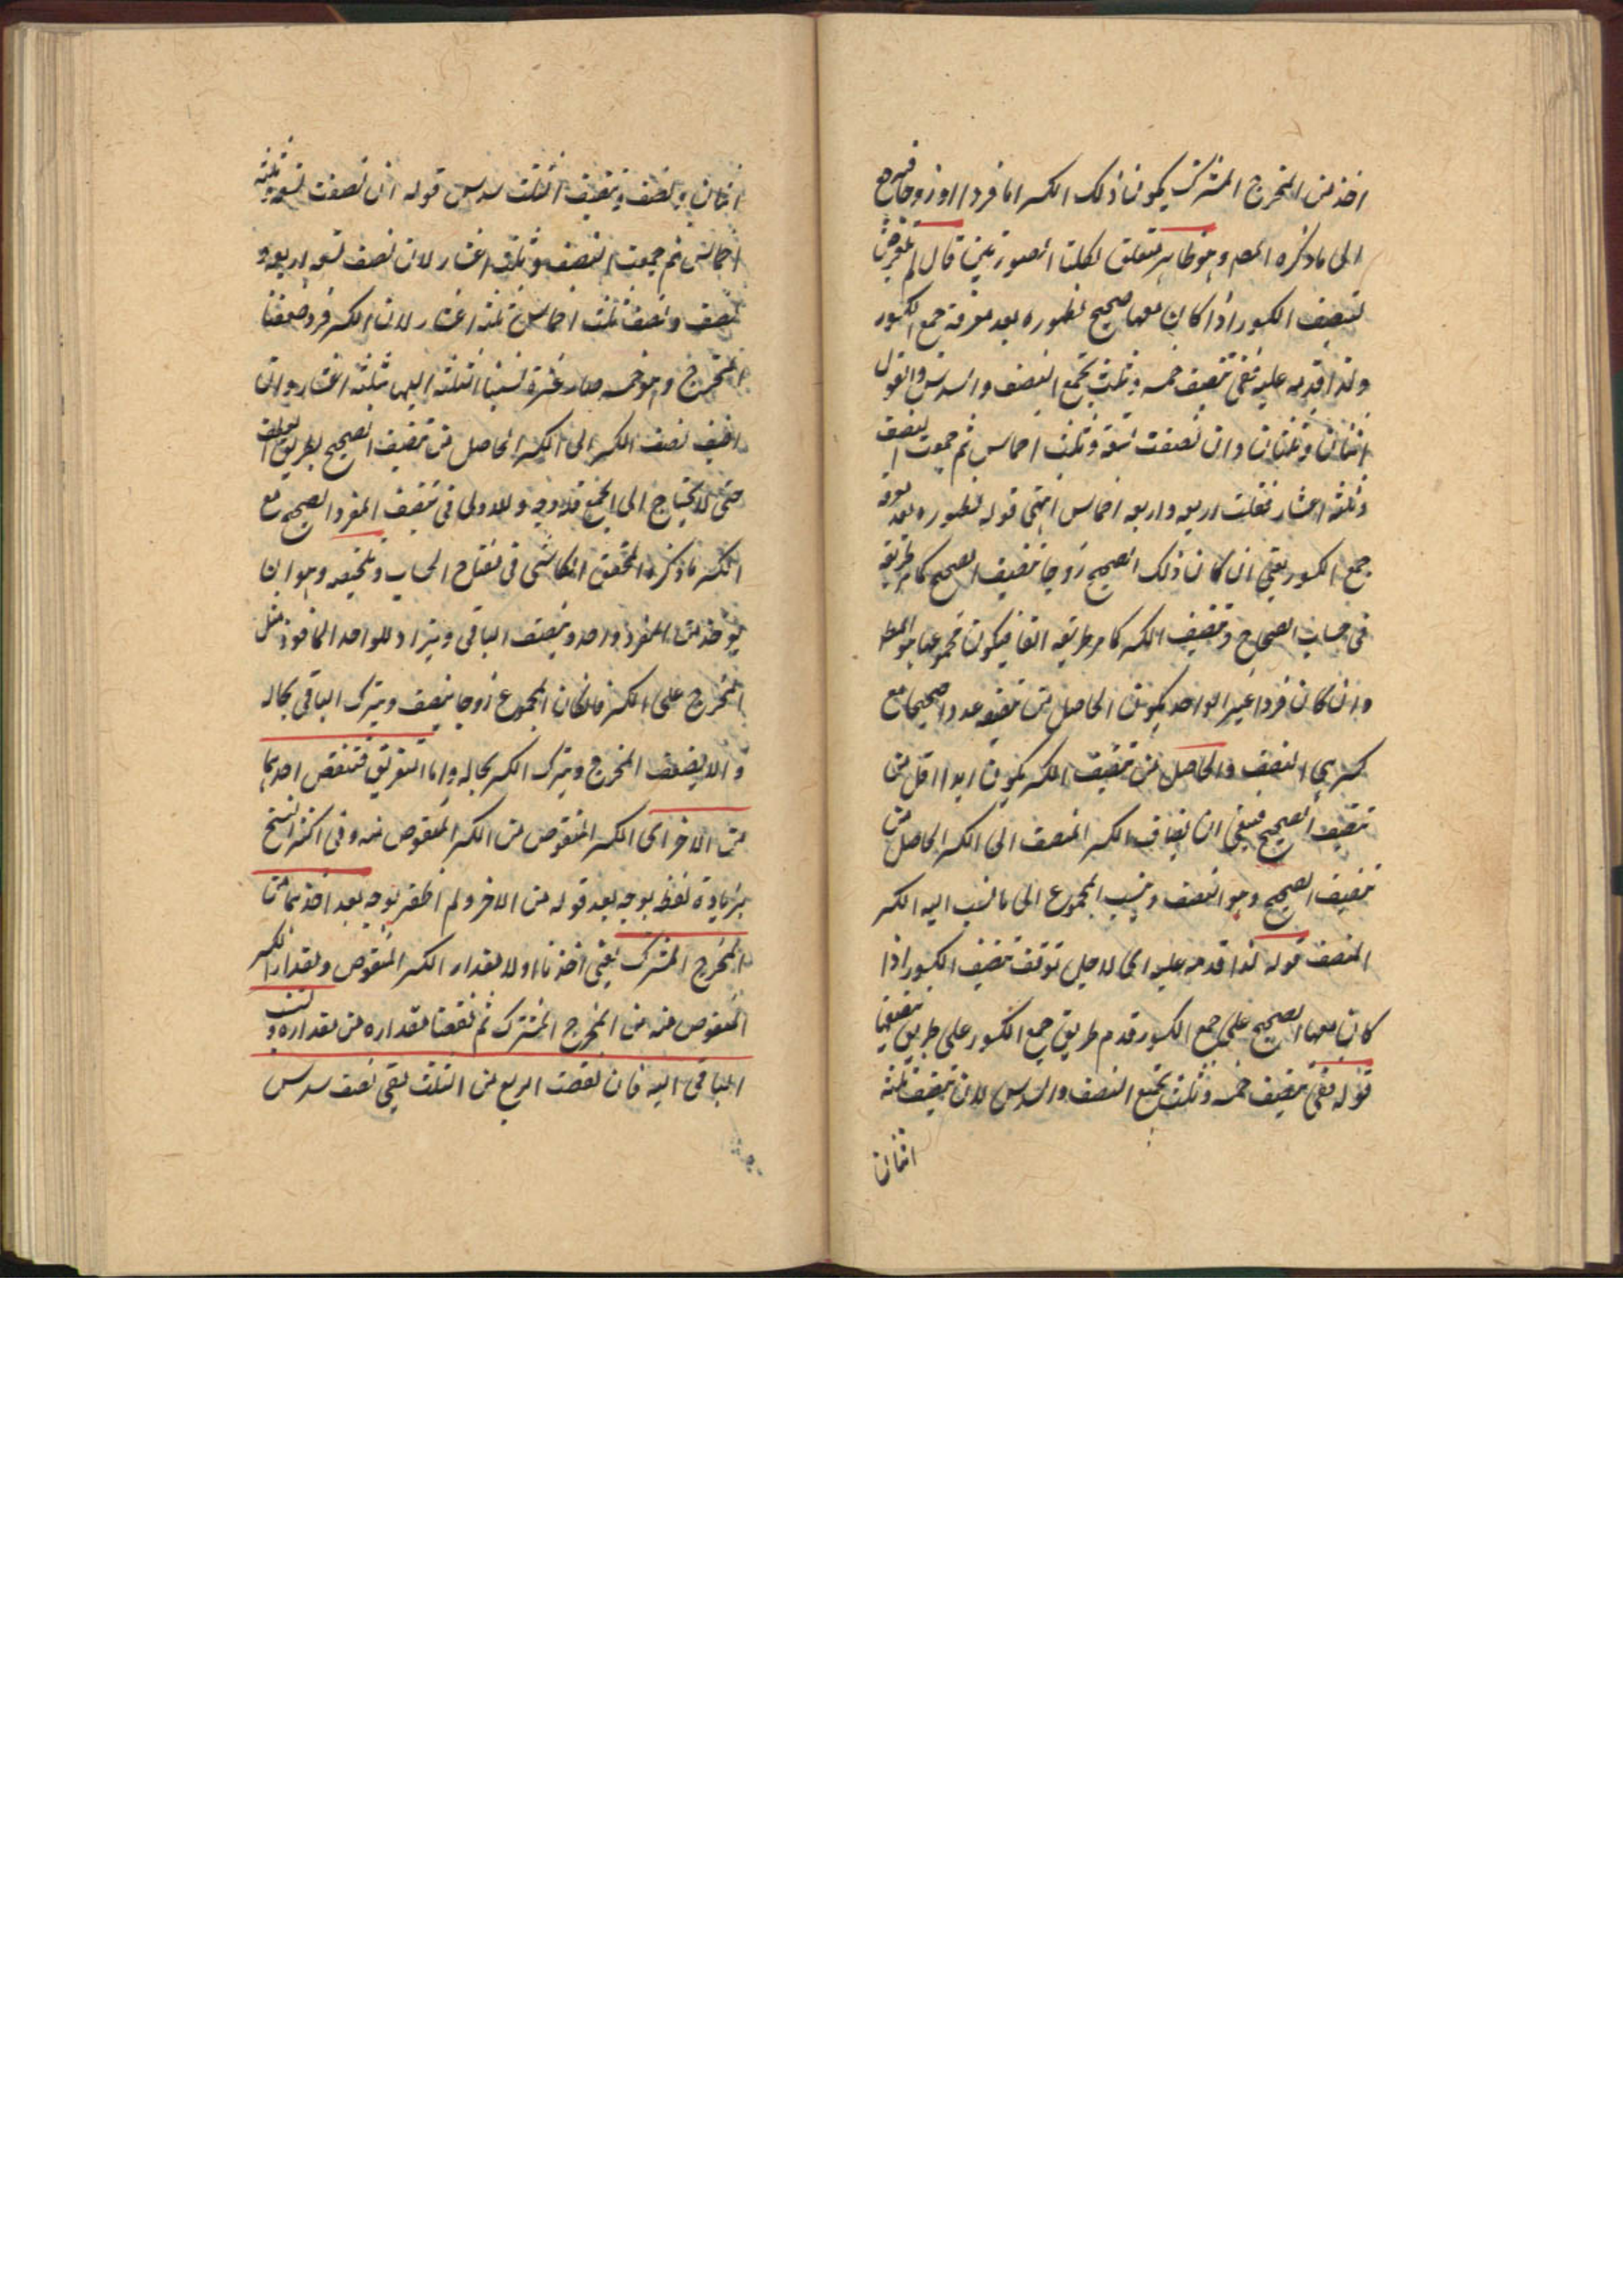 اخذ من المخرج المشترك يكون ذلك الكسر اما فردا او زوجا فيرجع
الى ما ذكره المص وهو ظاهر متعلق لكلتا الصورتين قال لم يتعرض
لتنصيف الكسور اذا كان معها صحيح لظهوره بعد معرفة جمع الكسور
ولذا قدمه عليه ففى تنصيف خمسة وثلث تجمع النصف والسدس وتقول
اثنان وثلثان وان نصفت تسعة وثلث اخماس ثم جمعت النصف
وثلثة اعشار فقلت اربعة واربعة اخماس انتهى قوله لظهوره بعد معرفة
جمع الكسور يعنى ان كان ذلك الصحيح زوجا تنصيف الصحيح كما مر طريقه
فى حساب الصحاح وتنصيف الكسر كما مر طريقه انفا فيكون مجموعهما هو المط
وان كان فردا غير الواحد يكون الحاصل من تنصيفه عددا صحيحا مع
كسر هى النصف والحاصل من تنصيف الكسر يكون ابدا اقل من
تنصيف الصحيح فينبغى ان يضاف الكسر المنصف الى الكسر الحاصل من
تنصيف الصحيح وهو النصف وينسب المجموع الى ما نسب اليه الكسر
المنصف قوله لذا قدمه عليه اى لاجل توقف تنصيف الكسور اذا
كان معها الصحيح على جمع الكسور قدم طريق جمع الكسور على طريق تنصيفها
قوله ففى تنصيف خمسة وثلث تجمع النصف والسدس لان تنصيف خمسة
اثنان
اثنان ونصف وتنصيف الثلث سدس قوله ان نصفت تسعة وثلثة
اخماس ثم جمعت النصف وثلثة اعشار لان نصف تسعة اربعة و
نصف ونصف ثلث اخماس ثلثة اعشار لان الكسر فرد ضعفنا
المخرج وهو خمسة صار عشرة نسبنا الثلثة اليها ثلثة اعشار وان
اضيف نصف الكسر الى الكسر الحاصل من تنصيف الصحيح بطريق
حتى لا يحتاج الى الجمع فلا وجه والاولى فى تنصيف المفرد الصحيح مع
الكسر ما ذكره المحقق الكاشى فى مفتاح الحساب وتلخيصه وهو ان
يؤخذ من المفرد واحد وينصف الباقى ويزاد للواحد الماخوذ مثل
المخرج على الكسر فان كان المجموع زوجا ينصف ويترك الباقى بحاله
والا يضعف المخرج ويترك الكسر بحاله واما التفريق فتنقص احدهما
من الاخر اى الكسر المنقوص من الكسر المنقوص منه وفى اكثر النسخ
بزيادة لفظ بوجه بعد قوله من الاخر ولم اظفر بوجه بعد اخذهما من
المخرج المشترك يعنى اخذنا اولا مقدار الكسر المنقوص ومقدار الكسر
المنقوص منه من المخرج المشترك ثم نقصنا مقداره من مقداره وننسب
الباقى اليه فان نقصت الربع من الثلث بقى نصف سدس